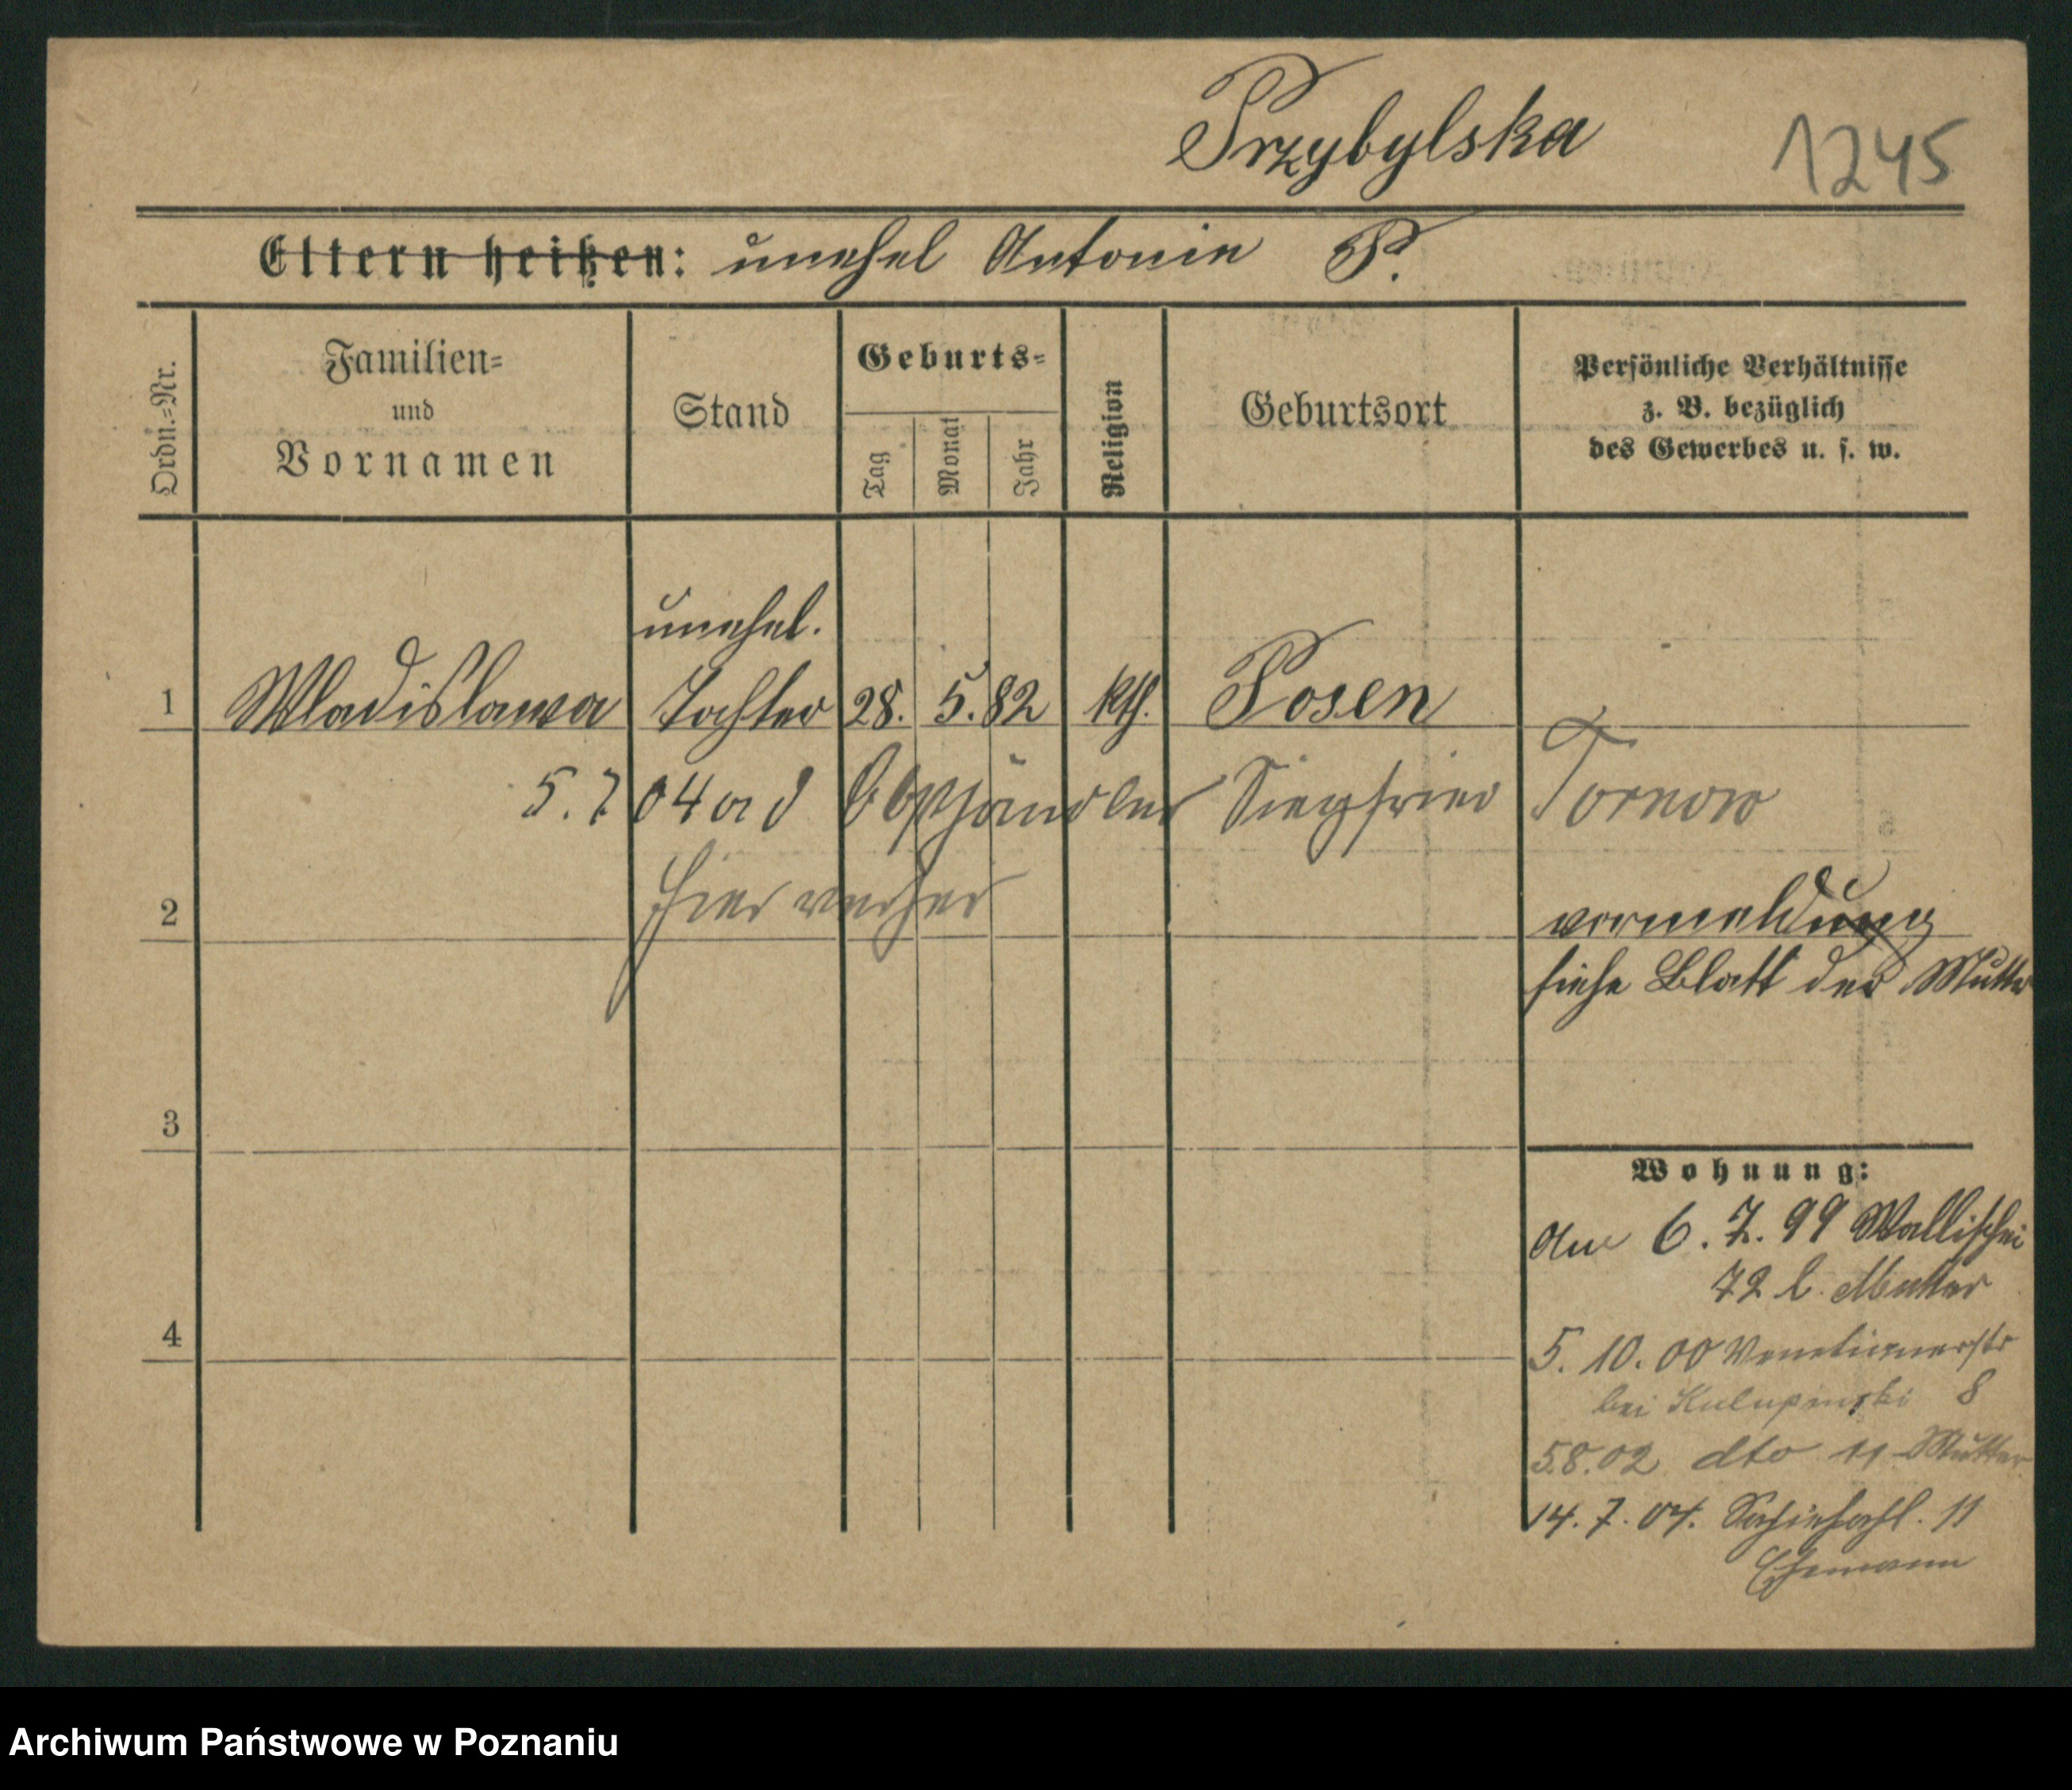 Przybylska 1245
Eltern heißen: unehel Antonie P.
Ordn.-Nr.
Familien-
und
Vornamen
Stand
Geburts-
Tag
Monat
Jahr
Religion
Geburtsort
Persönliche Verhältnisse
z. B. bezüglich
des Gewerbes u. s. w.
unehel.
1 Wladislawa Tochter 28. 5. 82 kth. Posen
5. 7 04 a d Obsthändler Siegfried Tornow
hier verher
2 vormeldung
siehe Blatt der Mutter
3
Wohnung:
Aus 6. 7. 99 Wallischei
72 b. Mutter
4
5. 10. 00 Venetianerstr
bei 8
5.8.02 dto 11 Mutter
14. 7. 04. 11
Ehemann
Archiwum Państwowe w Poznaniu